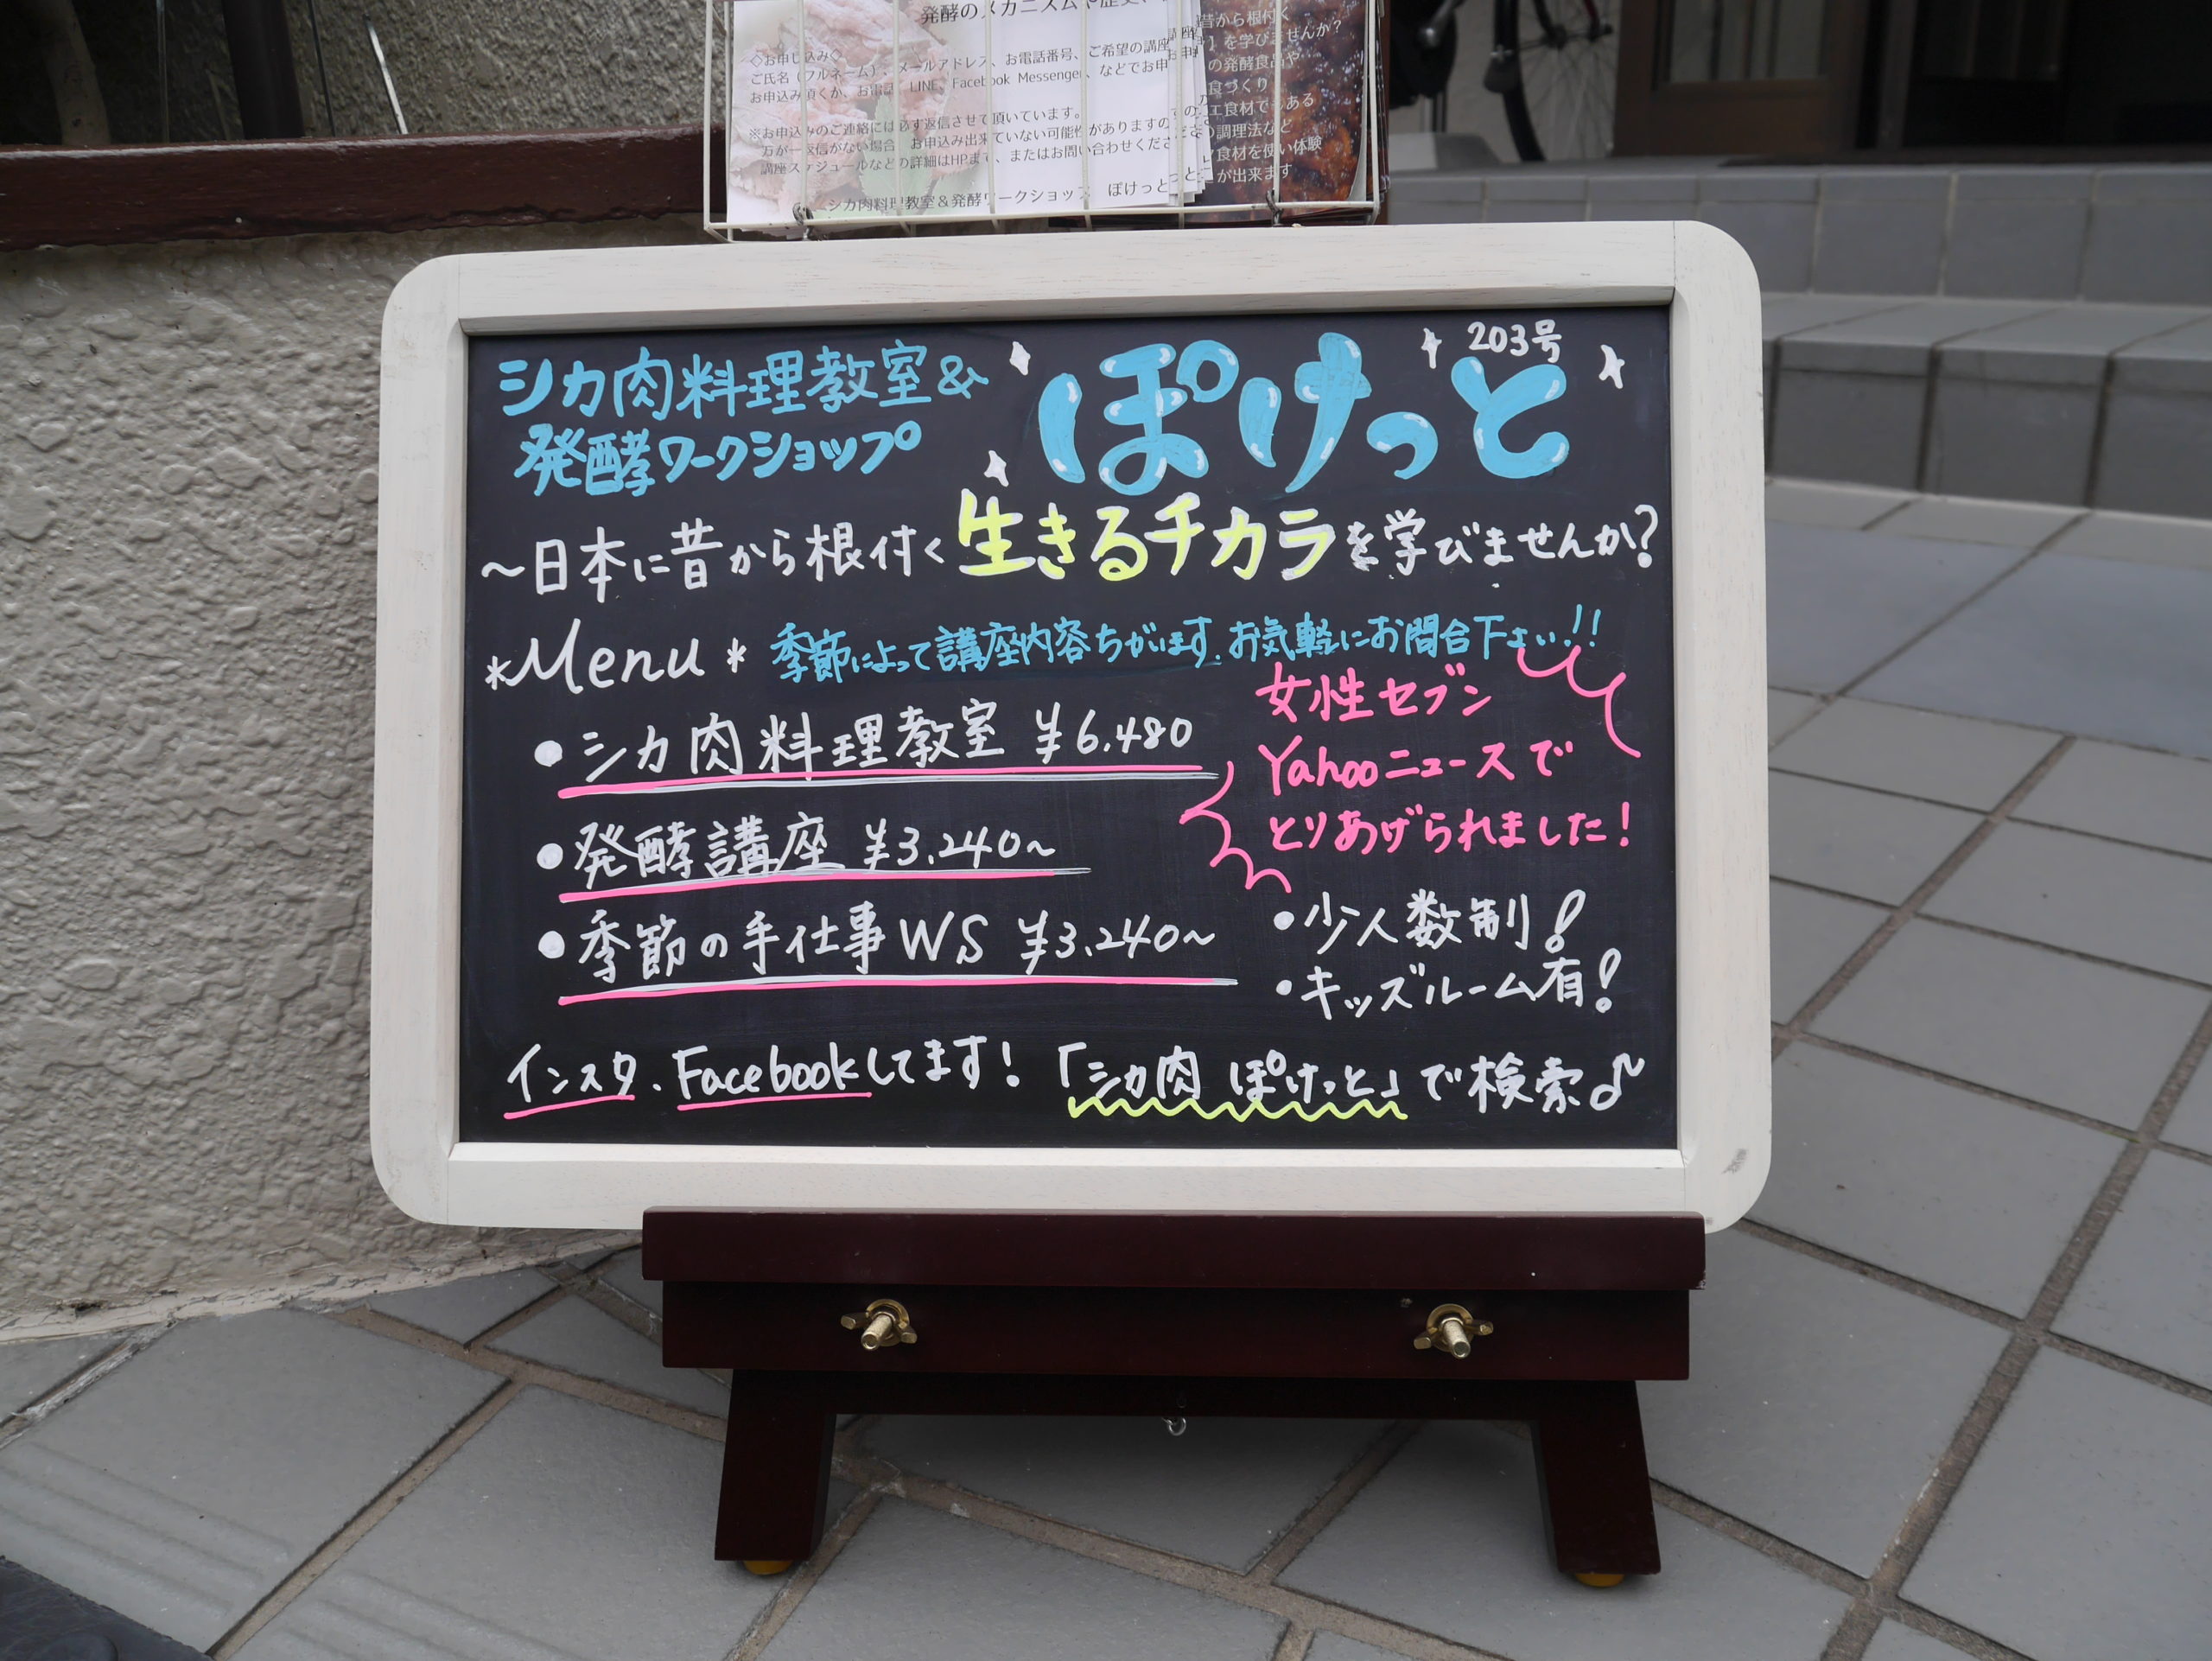 発酵のメカニズムや歴史、
◇お申し込み◇
ご氏名（フルネーム）、メールアドレス、お電話番号、ご希望の講座
お申込み頂くか、お電話、LINE、Facebook Messenger、などでお申
※お申込みのご連絡には必ず返信させて頂いています。
万が一返信がない場合、お申込み出来ていない可能性がありますの
講座スケジュールなどの詳細はHPまで、またはお問い合わせくださ
シカ肉料理教室＆発酵ワークショップ ぽけっと
昔から根付く
を学びませんか？
の発酵食品や
食づくり
工食材でもある
の調理法など
食材を使い体験
が出来ます
シカ肉料理教室&
発酵ワークショップ
ぽけっと
203号
〜日本に昔から根付く生きるチカラを学びませんか?
*Menu* 季節によって講座内容ちがいます。お気軽にお問合下さい!!
• シカ肉料理教室 ¥6,480
• 発酵講座 ¥3,240〜
• 季節の手仕事WS ¥3,240〜
女性セブン
Yahooニュースで
とりあげられました!
• 少人数制!
• キッズルーム有!
インスタ、Facebookしてます! 「シカ肉 ぽけっと」で検索♪